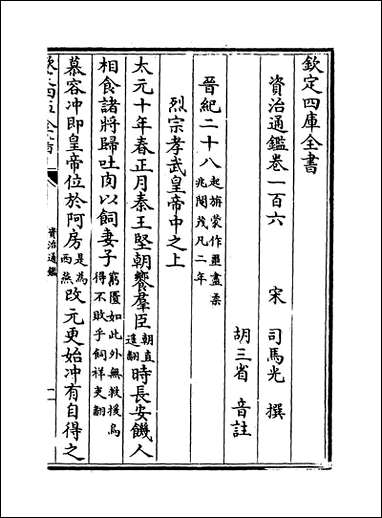 欽定四庫全書
資治通鑑卷一百六
宋 司馬光 撰
胡三省 音註
晉紀二十八起旃蒙作噩盡柔兆閹茂凡二年
烈宗孝武皇帝中之上
太元十年春正月秦王堅朝饗羣臣朝直遥翻時長安饑人
相食諸將歸吐肉以飼妻子窮匱如此外無救援烏得不敗乎飼祥吏翻
慕容冲即皇帝位於阿房是為西燕改元更始冲有自得之
欽定四庫全書
資治通鑑
一